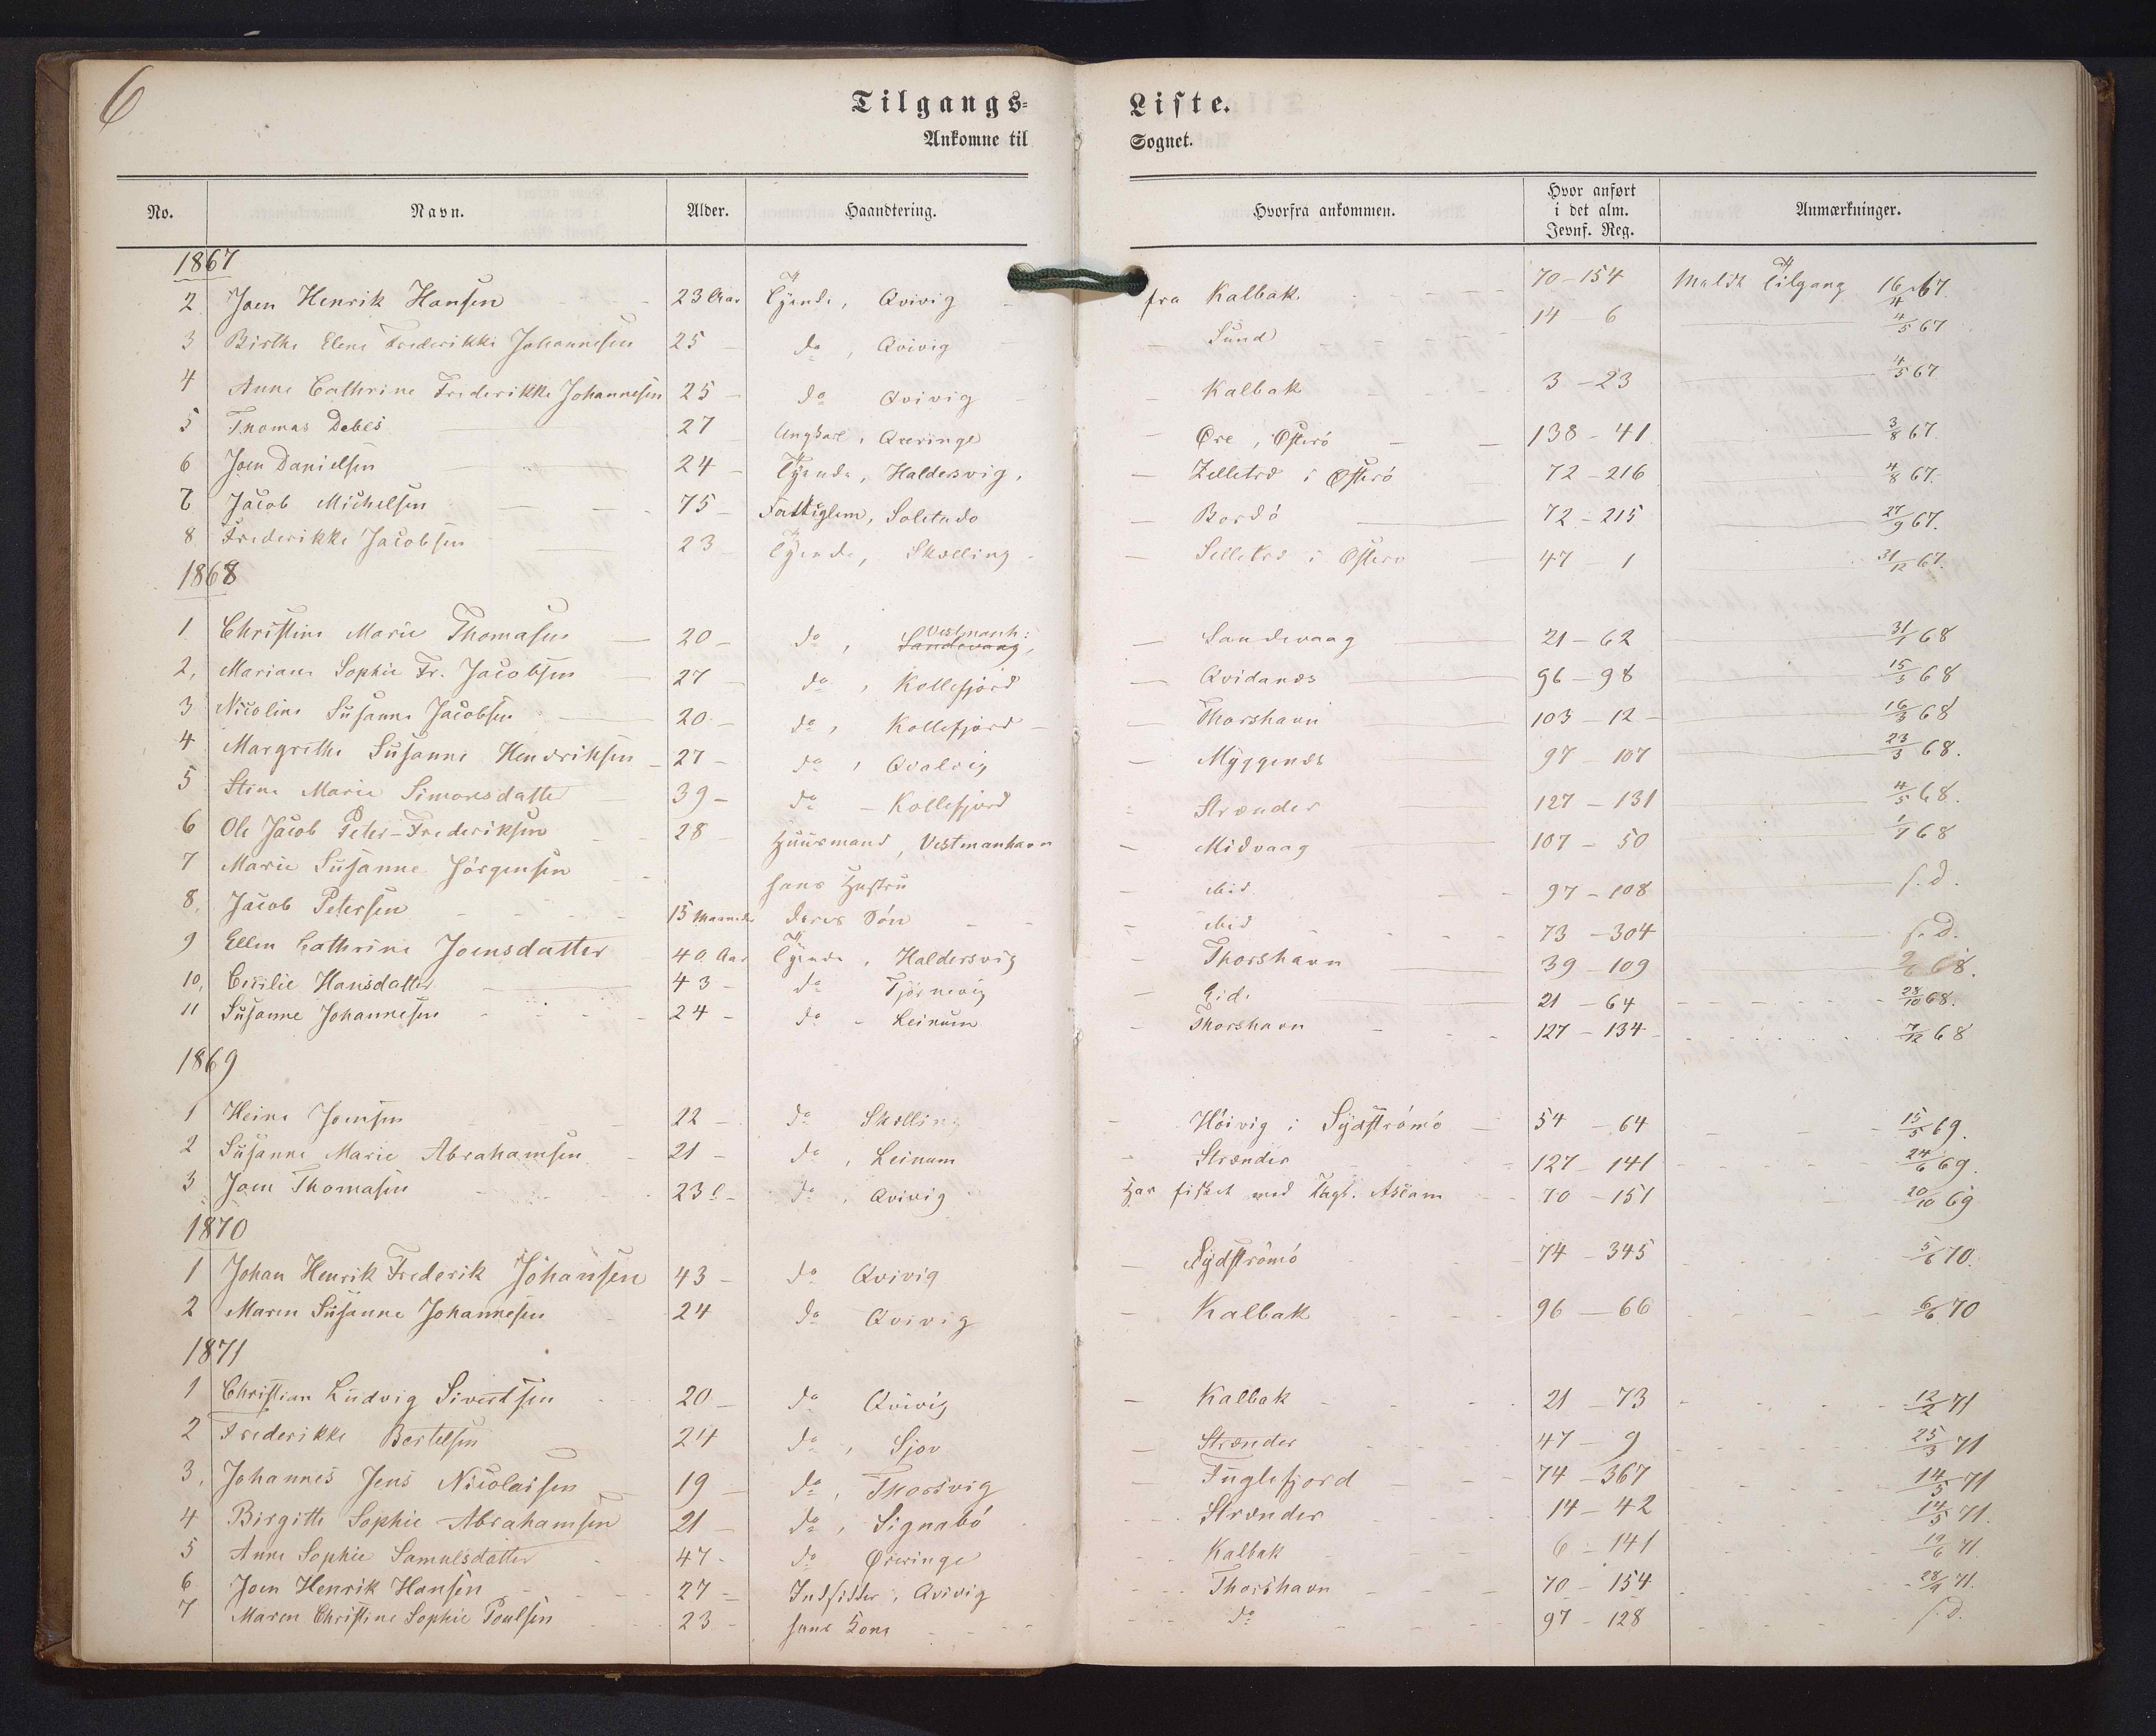 6
Tilgangs- Liste.
Ankomne til Sognet.
No. Navn. Alder. Haandtering. Hvorfra ankommen. Hvor anført i det alm. Jevnf. Reg. Anmærkninger.
1867
2 Joen Henrik Hansen 23 Aar Tyende, Qvivig fra Kalbak 70-154 Meldt Tilgang 16/4 67.
3 Birthe Elene Frederikke Johannesen 25 do, Qvivig — Sund 14-6 4/5 67
4 Anne Cathrine Frederikke Johannesen 25 — do Qvivig — Kalbak 3-23 4/5 67
5 Thomas Debes 27 Ungkarl, Qverringe — Øre, Østerö — 138-41 3/8 67.
6 Joen Danielsen 24 — Tyende, Haldersvig, — Zelletræ i Østerö 72-216 4/8 67.
7 Jacob Michelsen 75 — Fattiglem, — Bordö 72-215 27/9 67.
8 Frederikke Jacobsen 23 Tyende, Skælling — Selletræ i Østerö 47-1 31/12 67.
1868
1 Christine Marie Thomasen 20 — do, Vestmanh: Sandevaag, — Sandevaag 21-62 31/1 68
2, Mariane Sophie Fr. Jacobsen 27 do, Kollefjord — Qvidanæs 96-98 15/3 68
3 Nicoline Susanne Jacobsen 20 — do, Kollefjord — Thorshavn 103-12 16/3 68
4 Margrethe Susanne Hendriksen 27 — do, Qvalvig — Myggenæs 97-107 23/3 68.
5 Stine Marie Simonsdatter 39 — do — Kollefjord Strænder 127-131 4/5 68.
6 Ole Jacob Peter-Frederiksen 28 Huusmand, Vestmanhavn — Midvaag 107-50 1/7 68
7 Marie Susanne Jörgensen hans Hustru ibid. 97-108 s.d.
8, Jacob Petersen 15 Maaneder deres Sön ibid 73-304 s.d.
9 Ellen Cathrine Joensdatter 40 Aar Tyende, Haldersvig Thorshavn 39-109 68.
10, Cecilie Hansdatter 43 — do Tjörnevig — Eide 21-64 28/10 68.
11 Susanne Johannesen 24 — do — Leinum Thorshavn 127-134 7/12 68
1869
1 Heine Joensen 22 — do Skælling Höivig i Sydströmö 54-64 15/5 69.
2 Susanne Marie Abrahamsen 21 — do, Leinum Strænder 127-141 24/6 69.
3 Joen Thomasen 23 — do, Qvivig Har fisket med 70-151 20/10 69
1870
1 Johan Henrik Frederik Johansen 43 — do Qvivig — Sydströmö 74-345 5/6 70.
2 Maren Susanne Johannesen 24 do Qvivig — Kalbak 96-66 6/6 70
1871
1 Christian Ludvig Sivertsen 20 — do Qvivig — Kalbak 21-73 12/2 71
2 Frederikke Bertelsen 24 do, Sjov — Strænder 47-9 25/3 71
3, Johannes Jens Nicolaisen 19 — do, Thorsvig — Fuglefjord 74-367 14/5 71
4 Birgitte Sophie Abrahamsen 21 — do, Signabö Strænder 14-42 14/5 71.
5 Anne Sophie Samuelsdatter 47 — do Øreringe Kalbak 6-141 19/6 71
6 Joen Henrik Hansen 27 — Indsidder, Qvivig Thorshavn 70-154 28/9 71.
7 Maren Christine Sophie Poulsen 23 — hans Kone do 97-128 s.d.